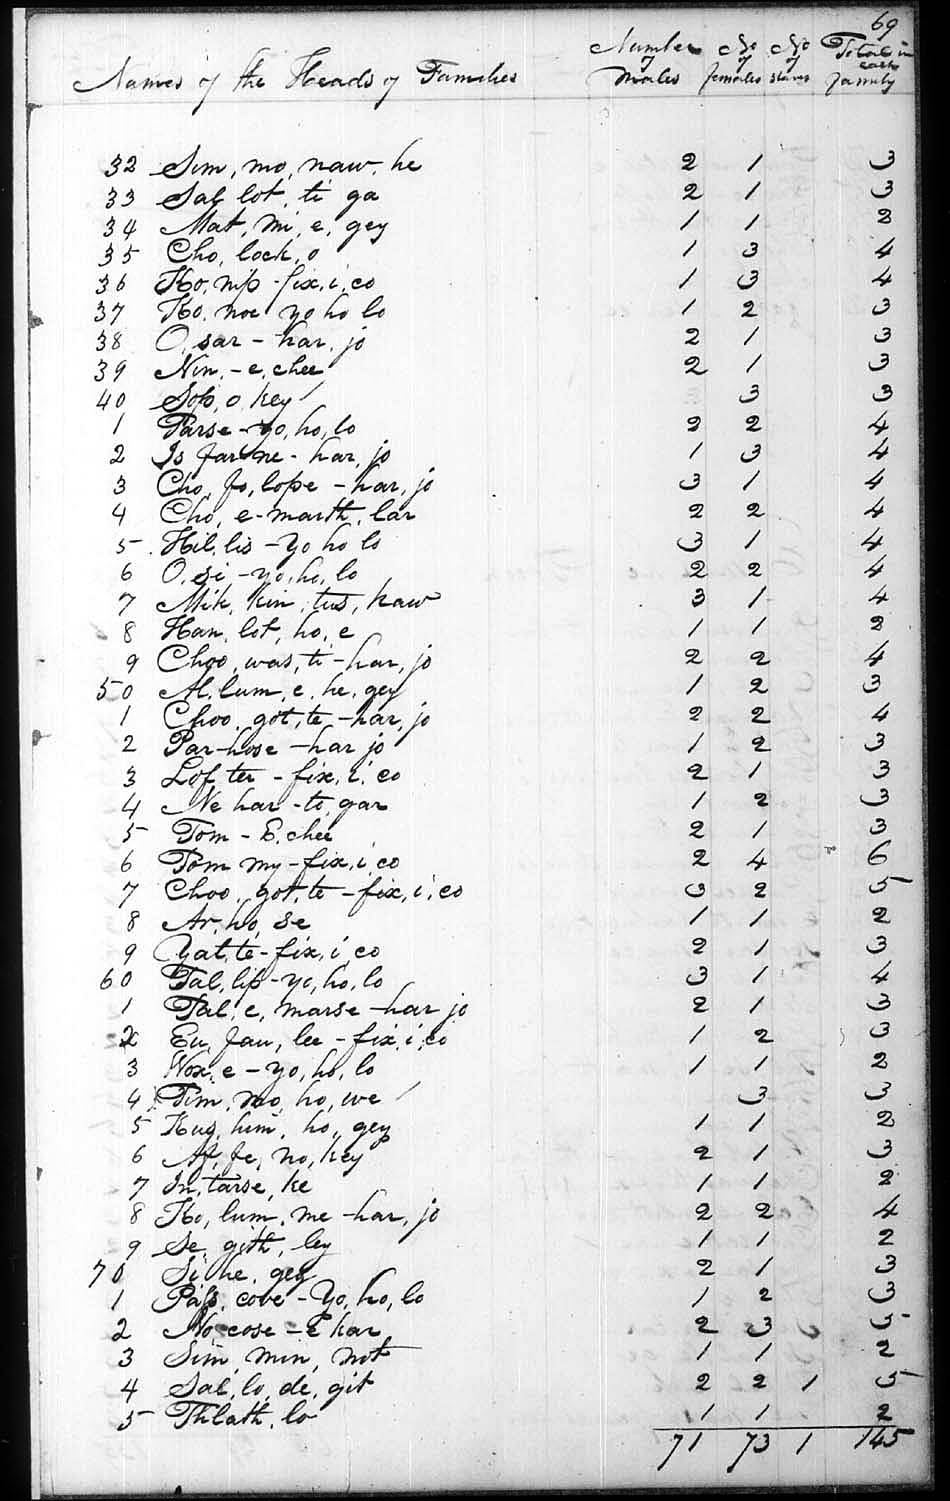 69
Names of the Heads of Families Number of Males No of females No of slaves Total in each family
32 Sim, mo, naw, he 2 1 3
33 Sal, lot, ti ga 2 1 3
34 Mat, mi, e, gey 1 1 2
35 Cho, lock, o 1 3 4
36 Ko, nip - fix, i, co 1 3 4
37 Ko, noc yo ho lo 1 2 3
38 O, sar - har, jo 2 1 3
39 Nin, - e, chee 2 1 3
40 Sop, o, key 3 3
1 Parse - yo, ho, lo 2 2 4
2 Is far ne - har, jo 1 3 4
3 Cho, fo, lope - har, jo 3 1 4
4 Cho, e - marth, lar 2 2 4
5 Hil, lis - Yo ho lo 3 1 4
6 O, si, - yo, ho, lo 2 2 4
7 Mik, kin, tus, kaw 3 1 4
8 Han, lot, ho, e 1 1 2
9 Choo, was, ti - har, jo 2 2 4
50 Al, lum, e, he, gey 1 2 3
1 Choo, got, te - har, jo 2 2 4
2 Par-hose - har jo 1 2 3
3 Lof, ter - fix, i, co 2 1 3
4 Ne har - to, gar 1 2 3
5 Tom - E, chee 2 1 3
6 Tom my - fix, i, co 2 4 6
7 Choo, got, te - fix, i, co 3 2 5
8 Ar, ho, se 1 1 2
9 Yat, te - fix, i co 2 1 3
60 Tal, lip - yo, ho, lo 3 1 4
1 Tal, e, marse - har jo 2 1 3
2 Eu, fau, lee - fix, i, co 1 2 3
3 Wox, e - yo, ho, lo 1 1 2
4 Tim, mo, ho, we 3 3
5 Kug, him, ho, gey 1 1 2
6 Af, fe, no, key 2 1 3
7 In, tarse, ke 1 1 2
8 Ko, lum, me - har, jo 2 2 4
9 Se, gith, ley 1 1 2
70 Si he, gey 2 1 3
1 Pass, cove - Yo, ho, lo 1 2 3
2 No, cose - E har 2 3 5
3 Sim, min, not 1 1 2
4 Sal, lo, de, git 2 2 1 5
5 Thlath, lo 1 1 2
71 73 1 145